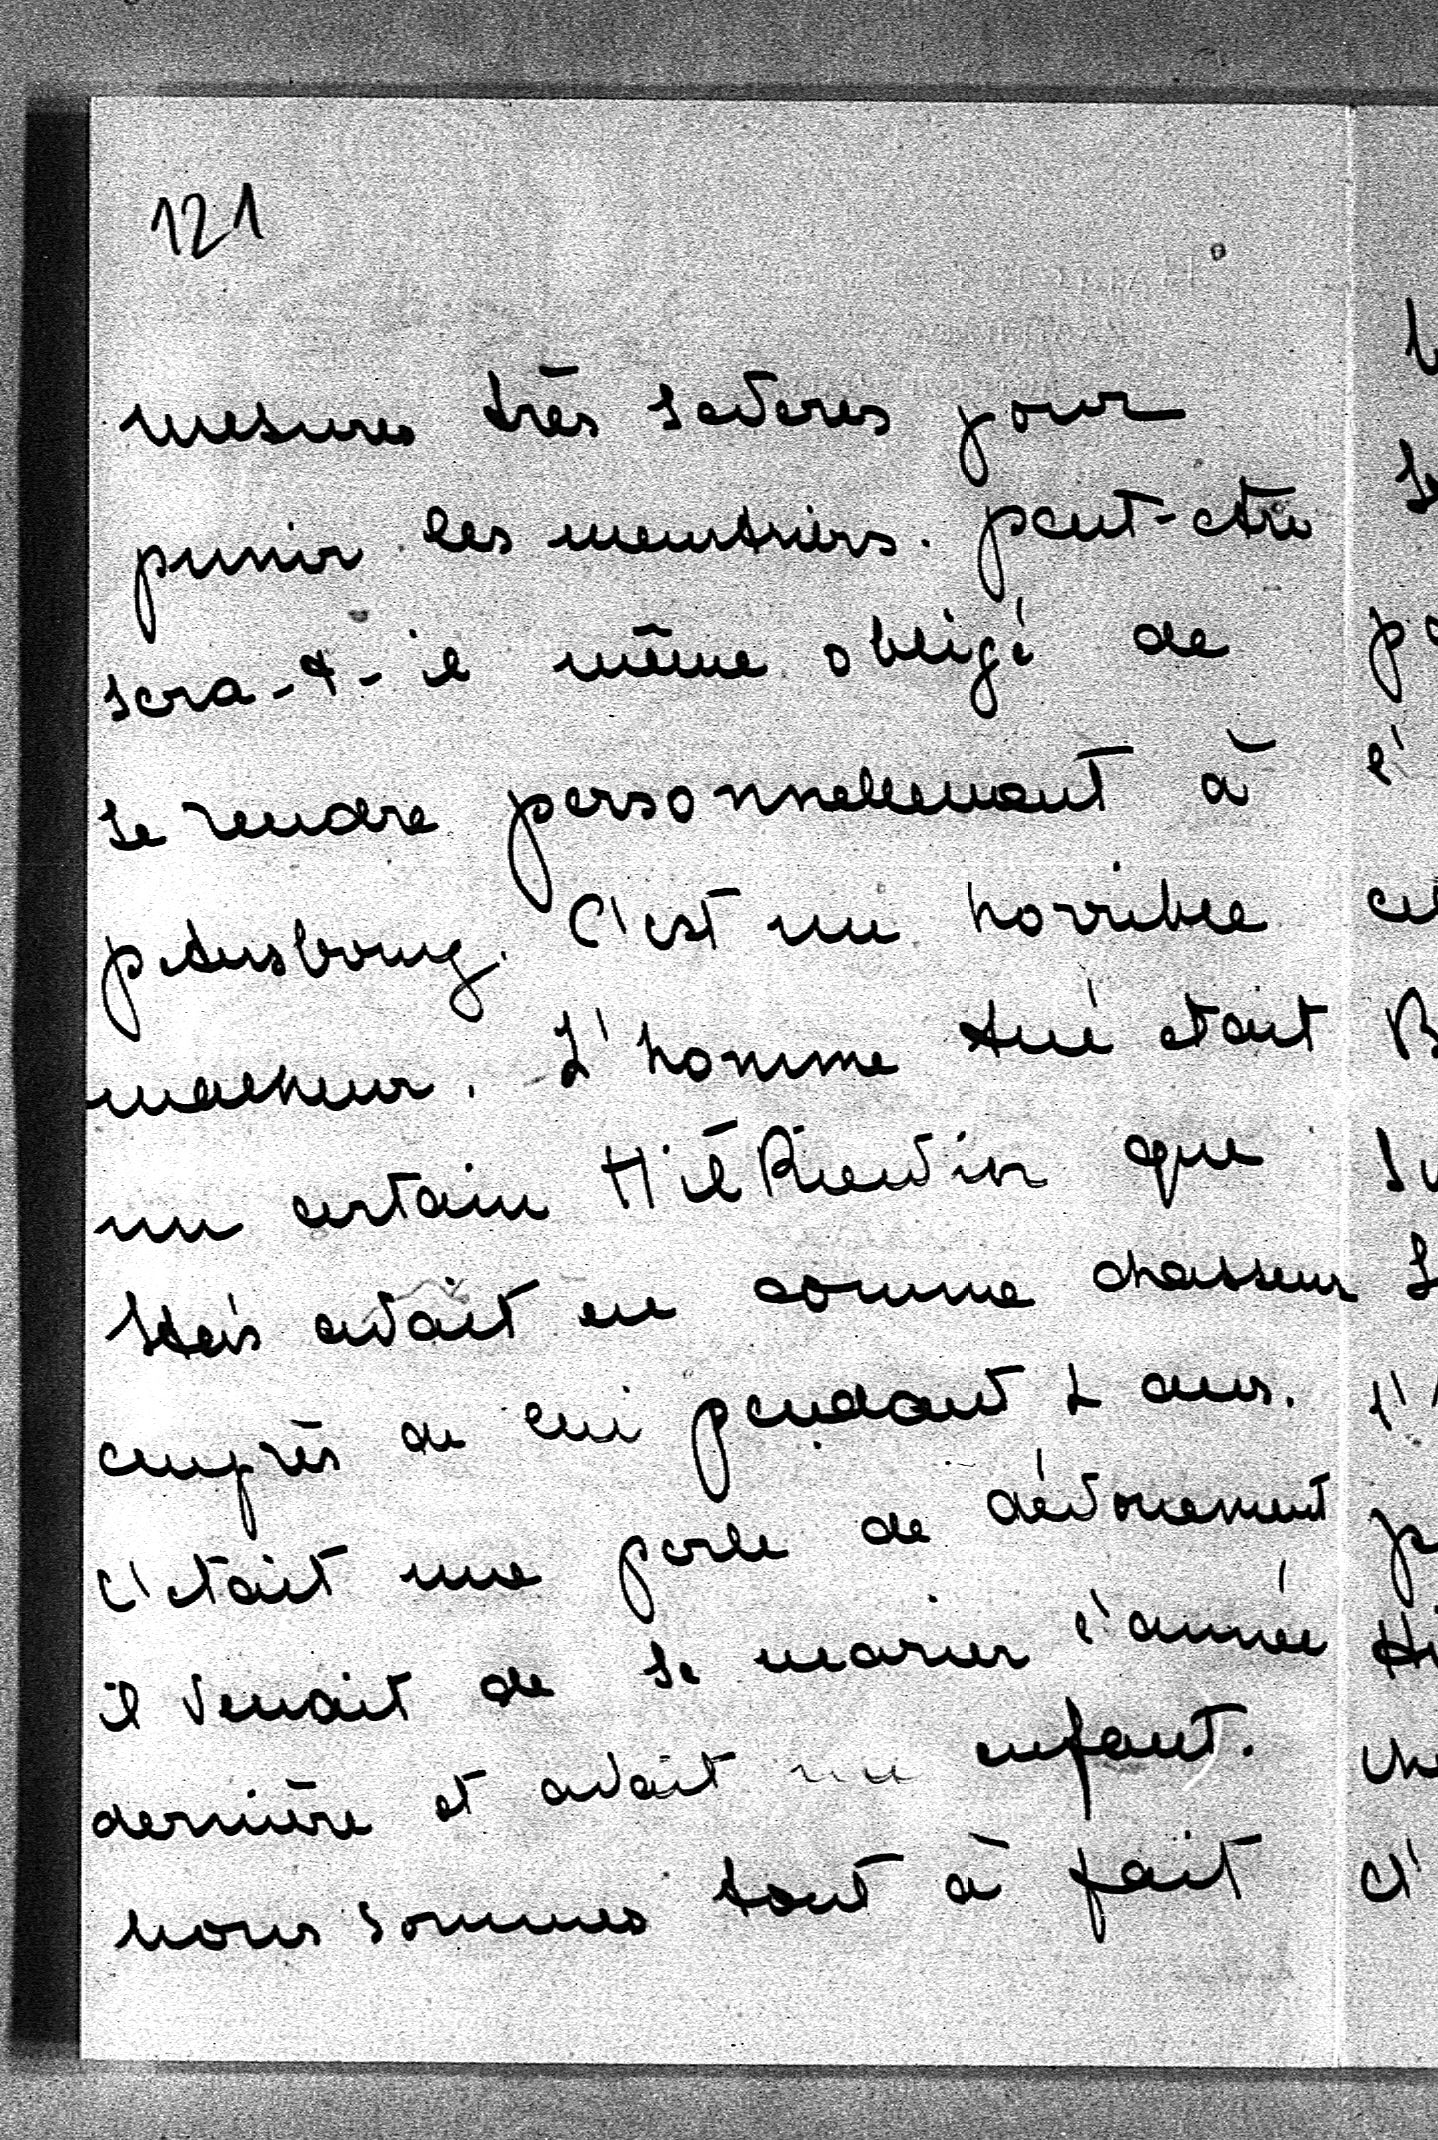 121
mesures très severes pour
punir les meurtriers. peut-etre
sera-t-il même obligé de
se rendre personnellement à
petersbourg. C'est un horrible
malheur. L'homme tué etait
un certain que
avait eu comme chasseur
auprès de lui pendant 2 ans.
c'etait une perle de dévouement
il venait de se marier l'année
dernière et avait un enfant.
nous sommes tout à fait